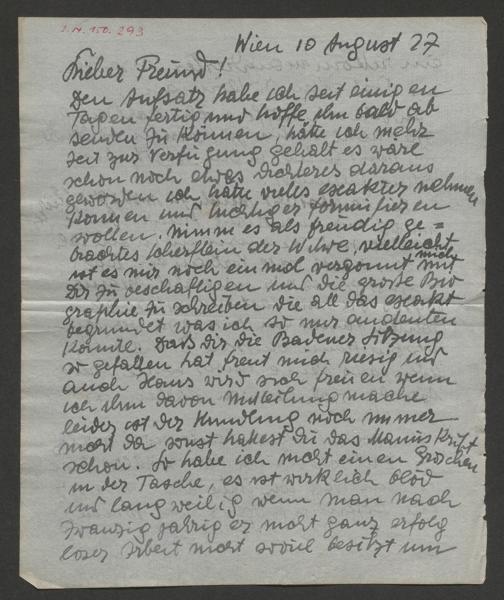 J.N. 150.293
Wien 10 August 27
Lieber Freund!
Den Aufsatz habe ich seit einigen
Tagen fertig und hoffe ihn bald ab
senden zu können, hätte ich mehr
Zeit zur Verfügung gehabt es wäre
schon noch etwas dichteres daraus
geworden ich hätte vieles exakter nehmen
können und tüchtiger formulieren
wollen. Nimm es als freudig ge=
brachtes Scherflein der Witwe, vielleicht
ist es mir noch einmal vergönnt mich mit
Dir zu beschäftigen und die große Bio
graphie zu schreiben die all das exakt
begründet was ich so nur andeuten
konnte. Dass dir die Badener Sitzung
so gefallen hat freut mich riesig und
auch Hans wird sich freuen wenn
ich ihm davon Mitteilung mache
leider ist der noch immer
nicht da sonst hättest Du das Manuskript
schon. So habe ich nicht einen Groschen
in der Tasche, es ist wirklich blöd
und langweilig wenn man nach
zwanzigjähriger nicht ganz erfolg
loser Arbeit nicht soviel besitzt um